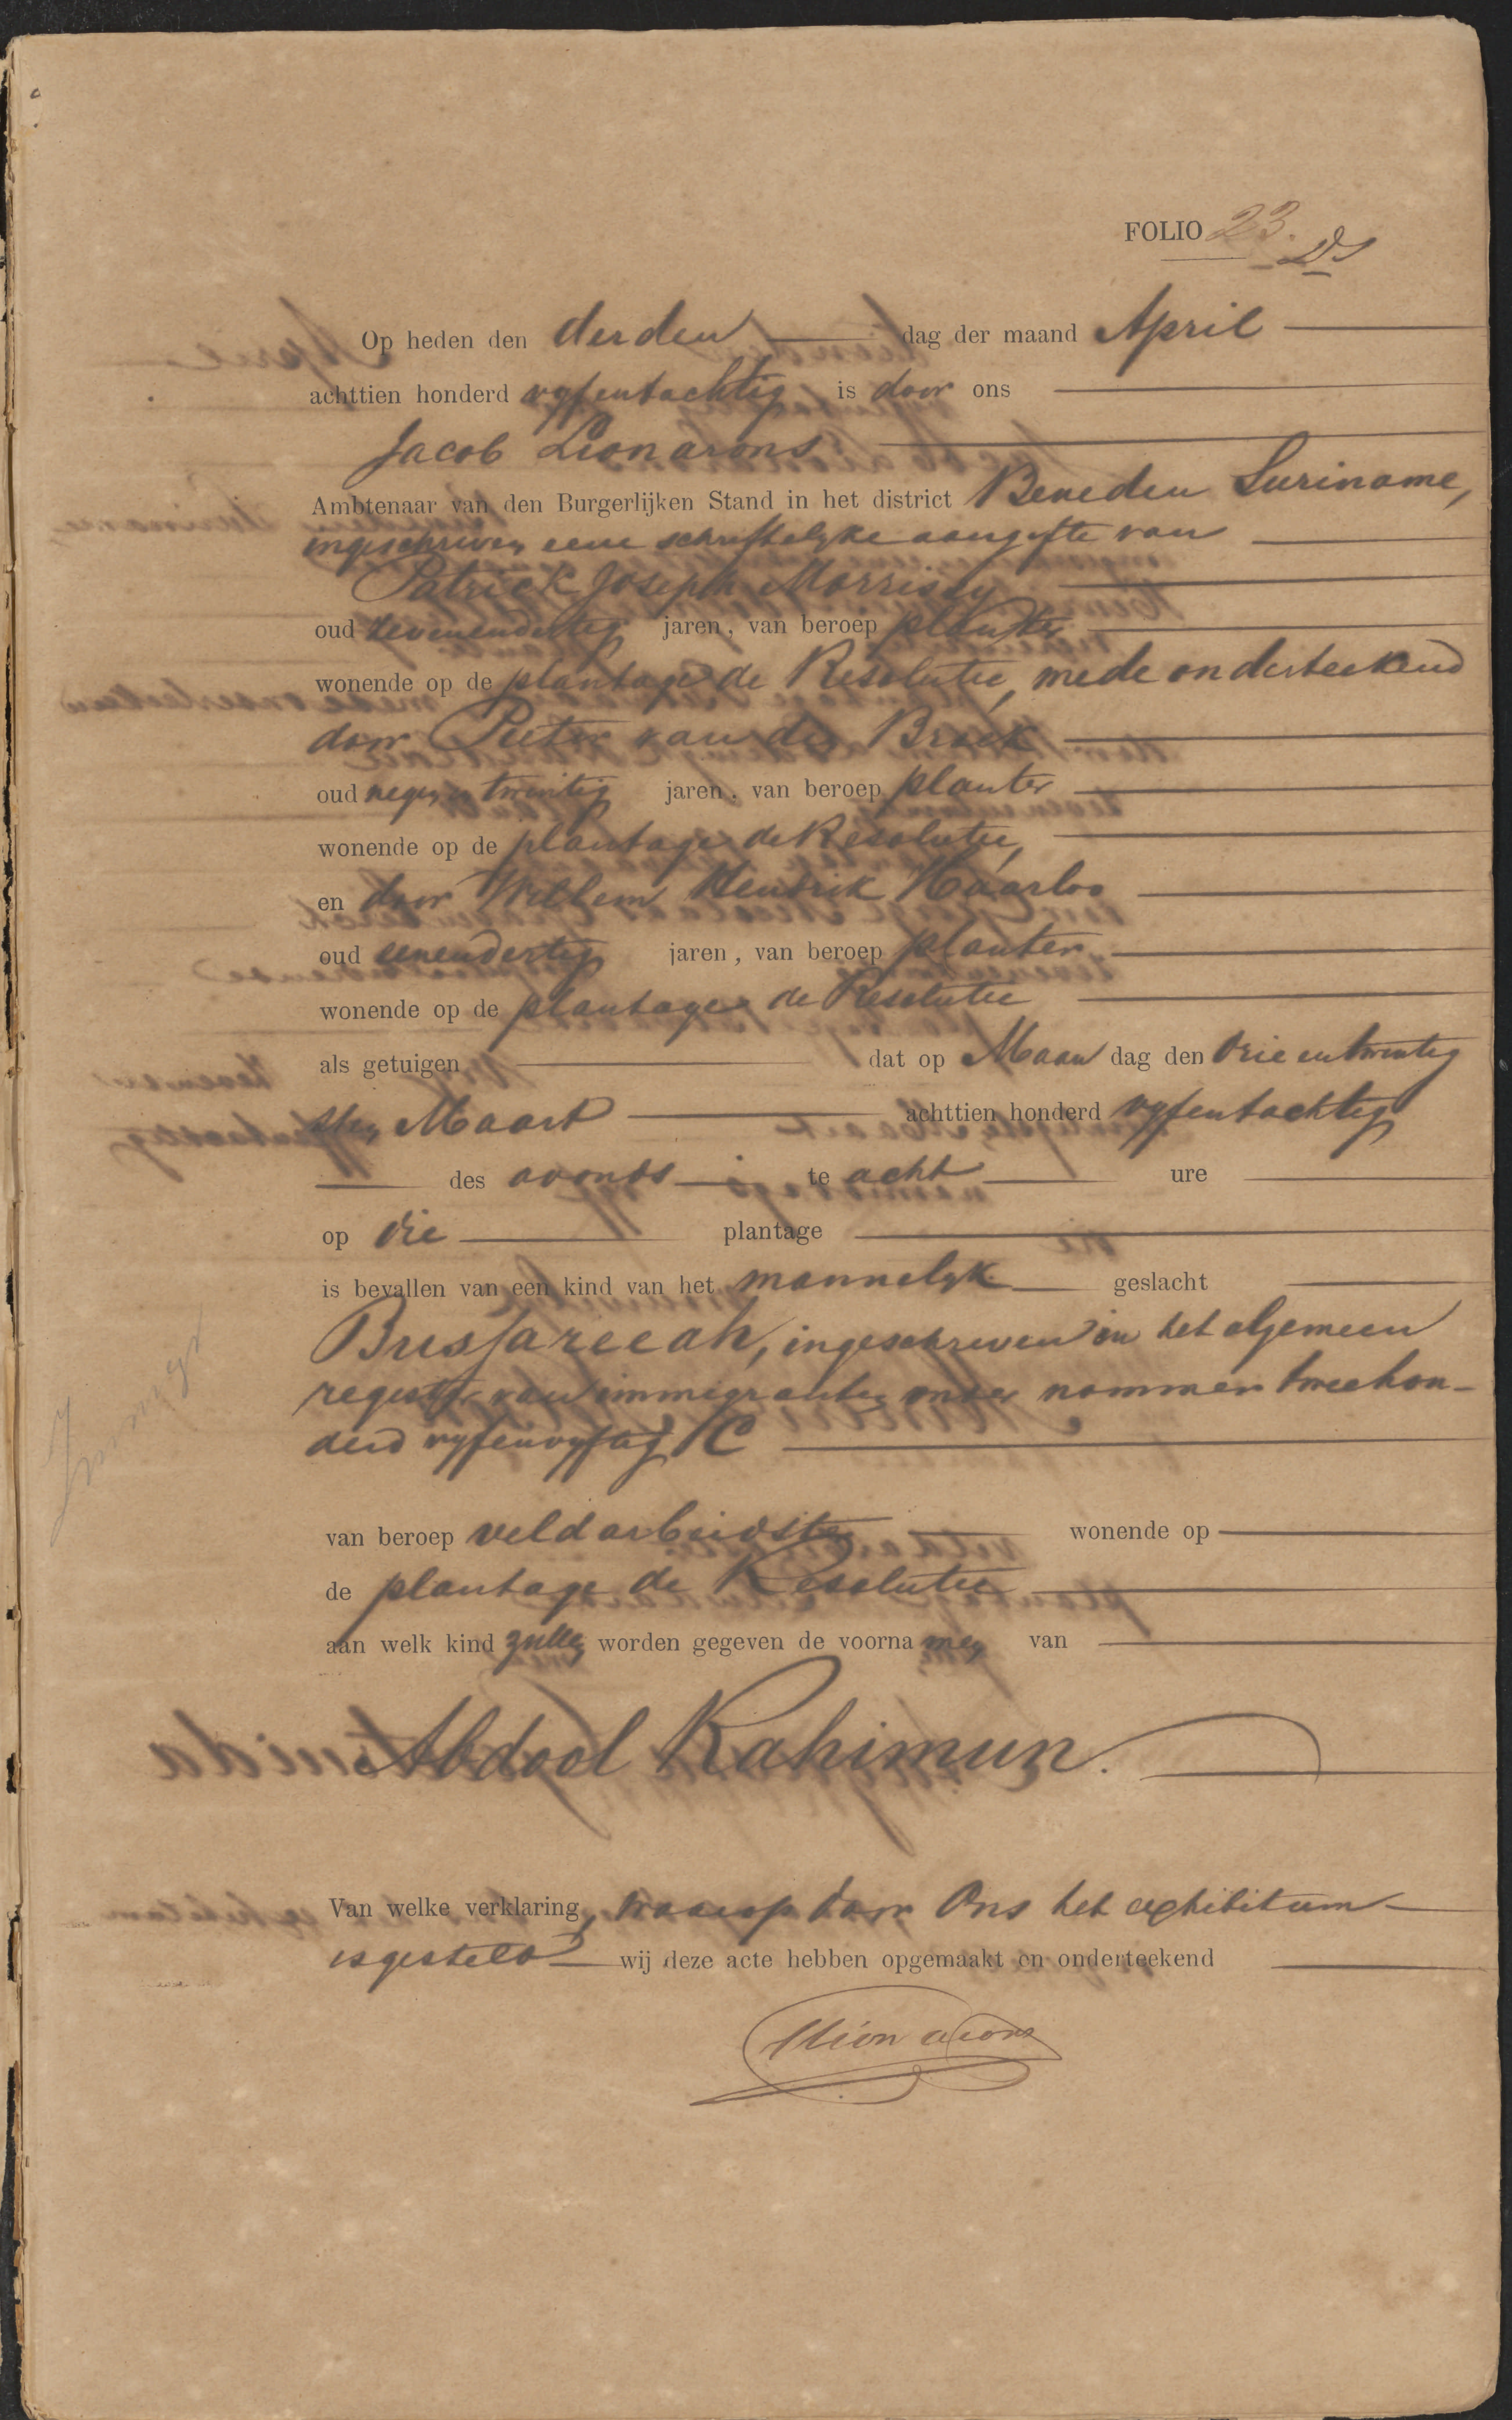 FOLIO 23.
Op heden den derden dag der maand April
achttien honderd vyfentachtig is door ons
Jacob Lionarons
Ambtenaar van den Burgerlijken Stand in het district Beneden Suriname,
ingeschreven eene schriftelyke aangifte van
Patrick Joseph Morrissy
oud zevenendertig jaren, van beroep planter
wonende op de plantage de Resolutie, mede onderteekend
door Pieter van den Broek
oud negenentwintig jaren, van beroep planter
wonende op de plantage de Resolutie,
en door Willem Hendrik Haarloo
oud eenendertig jaren, van beroep planter
wonende op de plantage de Resolutie
als getuigen dat op Maan dag den drie en twintig
sten Maart achttien honderd vyfentachtig
des avonds te acht ure
op die plantage
is bevallen van een kind van het mannelyk geslacht
Bussareeah, ingeschreven in het algemeen
register van immigranten onder nommer tweehon-
derd vyfenvyftig C
van beroep veldarbeidster wonende op
de plantage de Resolutie
aan welk kind zullen worden gegeven de voorna men van
Abdool Rahimun.
Van welke verklaring, waarop door Ons het exhibitum
is gesteld wij deze acte hebben opgemaakt en onderteekend
Lionarons